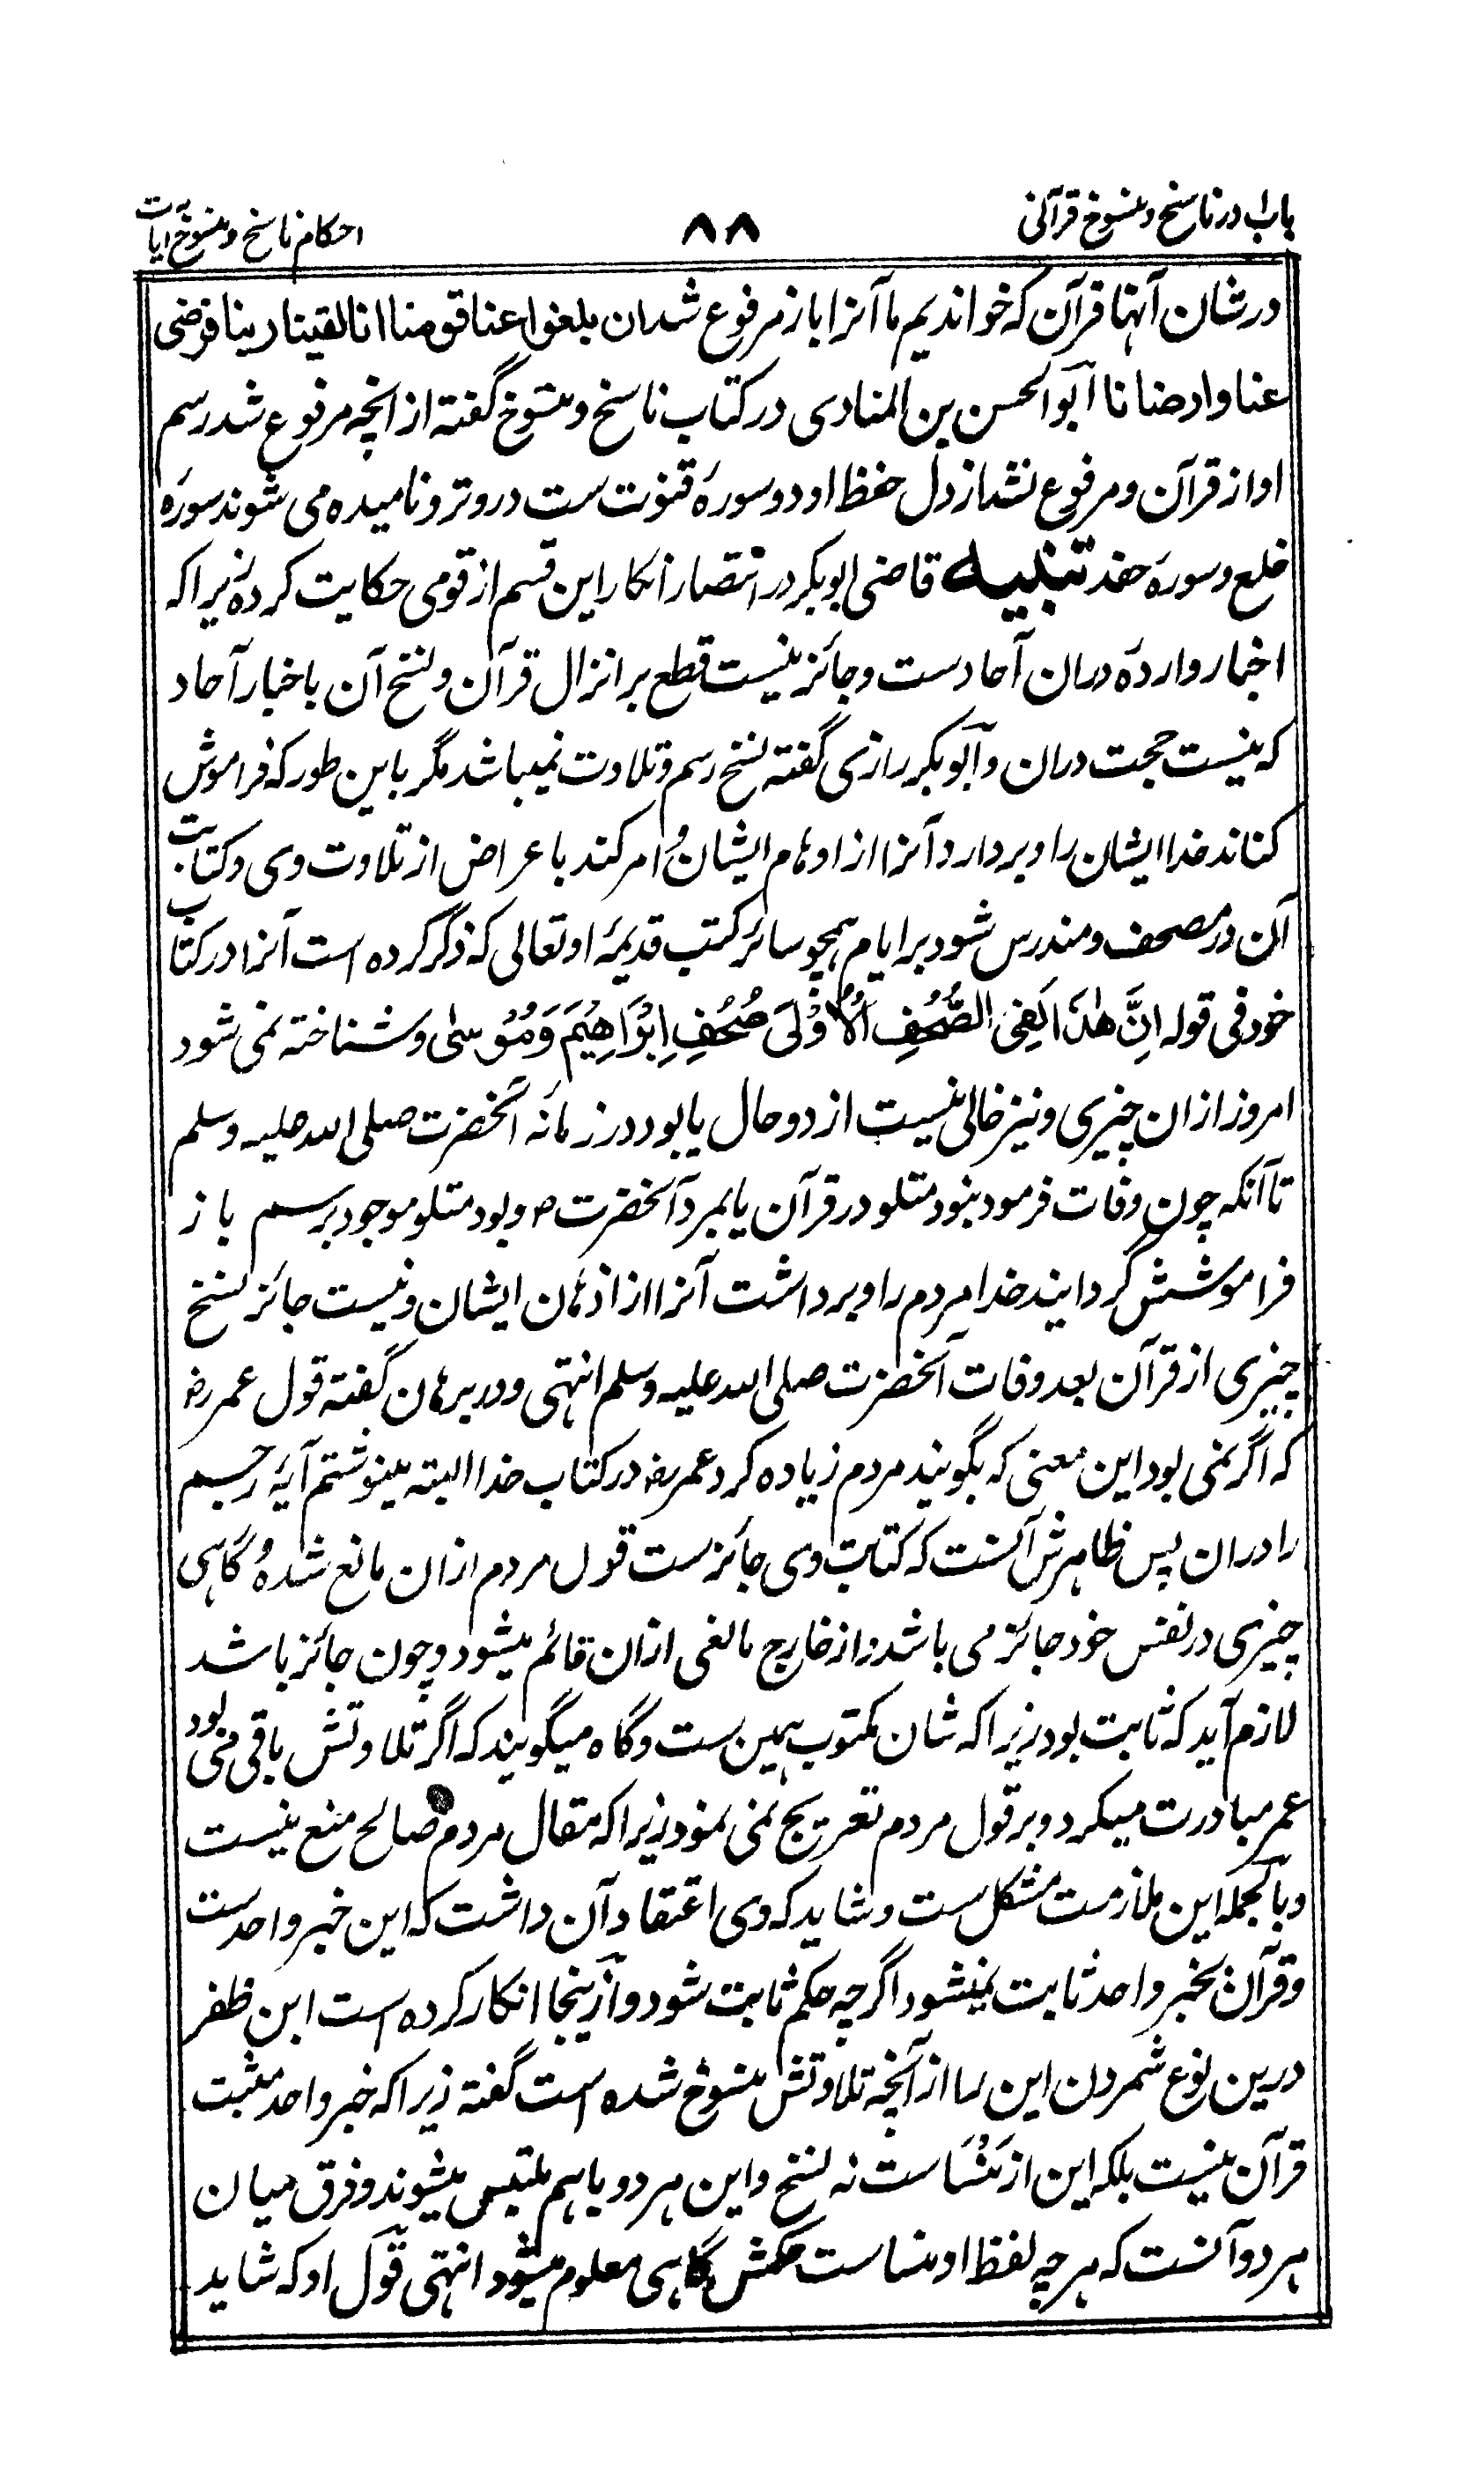 باب ۱ در ناسخ و منسوخ قرآنی
۸۸
احکام ناسخ و منسوخ آیات
در شان آنها قرآن که خواندیم ما آنرا باز مرفوع شد ان بلغوا عنا قومنا انا لقینا ربنا فرضی
عنا و ارضانا ابو الحسن بن المنادی در کتاب ناسخ و منسوخ گفته از انچه مرفوع شد رسم
او از قرآن و مرفوع نشد از دل حفظ او دو سورهٔ قنوت ست در وتر و نامیده می شوند سورهٔ
خلع و سورهٔ حفد تنبیه قاضی ابوبکر در انتصار انکار این قسم از قومی حکایت کرده زیرا که
اخبار وارده دران آحاد ست و جائز نیست قطع بر انزال قرآن و نسخ آن باخبار آحاد
که نیست حجت دران و ابوبکر رازی گفته نسخ رسم و تلاوت نمیباشد مگر باین طور که فراموش
کناند خدا ایشان را و بردارد آنرا از اوهام ایشان و امر کند باعراض از تلاوت وی و کتابت
آن در مصحف و مندرس شود بر ایام همچو سائر کتب قدیمهٔ او تعالی که ذکر کرده است آنرا در کتاب
خود فی قوله اِنَّ هٰذَا لَفِی الصُّحُفِ الْاُوْلٰی صُحُفِ اِبْرَاهِیْمَ وَمُوْسٰی و شناخته نمی شود
امروز ازان چیزی و نیز خالی نیست از دو حال یا بود در زمانهٔ آنحضرت صلی الله علیه وسلم
تا آنکه چون وفات فرمود نبود متلو در قرآن یا بمرد آنحضرت ص و بود متلو موجود برسم باز
فراموشش گردانید خدا مردم را و برداشت آنرا از اذهان ایشان و نیست جائز نسخ
چیزی از قرآن بعد وفات آنحضرت صلی الله علیه وسلم انتهی و در برهان گفته قول عمر رض
که اگر نمی بود این معنی که بگویند مردم زیاده کرد عمر رض در کتاب خدا البته مینوشتم آیهٔ رجم
را دران پس ظاهرش آنست که کتابت وی جائز ست قول مردم ازان مانع شده و گاهی
چیزی در نفس خود جائز می باشد و از خارج مانعی ازان قائم میشود و چون جائز باشد
لازم آید که ثابت بود زیرا که شان مکتوب همین ست و گاه میگویند که اگر تلاوتش باقی می بود
عمر مبادرت میکرد و بر قول مردم تعریج نمی نمود زیرا که مقال مردم صالح منع نیست
و بالجمله این ملازمت مشکل ست و شاید که وی اعتقاد آن داشت که این خبر واحد ست
و قرآن بخبر واحد ثابت نمیشود اگرچه حکم ثابت شود و ازینجا انکار کرده است ابن ظفر
درین نوع شمردن این را از آنچه تلاوتش منسوخ شده است گفته زیرا که خبر واحد مثبت
قرآن نیست بلکه این از مُنْسَا ست نه نسخ و این هر دو با هم ملتبس میشوند و فرق میان
هر دو آنست که هرچه لفظ او منسا ست حکمش گاهی معلوم میشود انتهی قول او که شاید